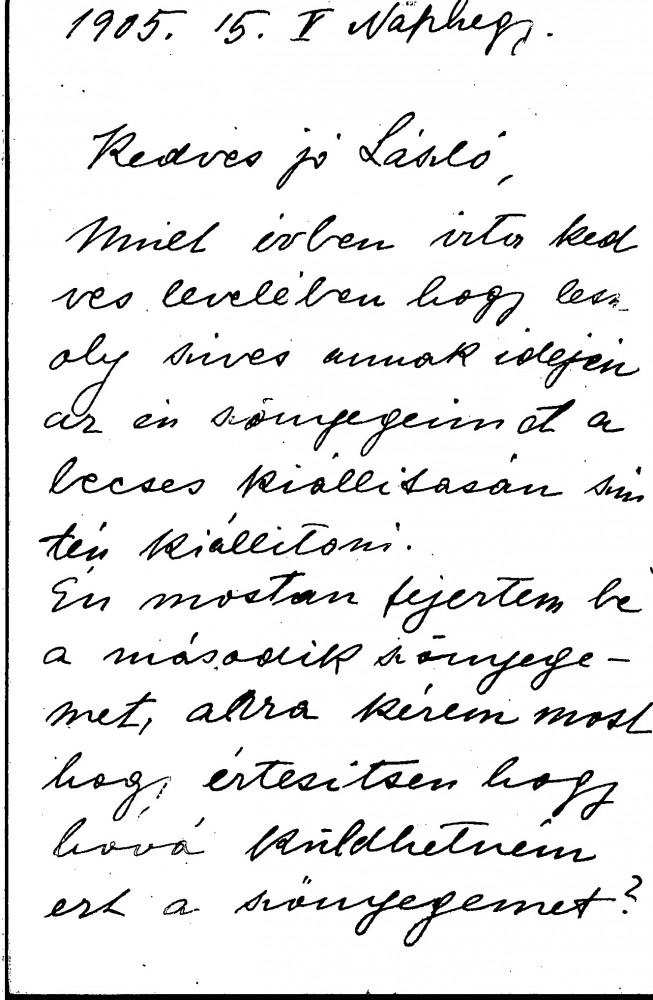 1905. 15. V Naphegy.
Kedves jó László,
Mult évben irta ked
ves levelében hogy lesz
oly szives annak idején
az én szőnyegeimet a
becses kiállitasán szin
tén kiállitani.
Én mostan fejeztem be
a második szőnyege-
met, arra kérem most
hogy értesitsen hogy
hová küldhetném
ezt a szőnyegemet?